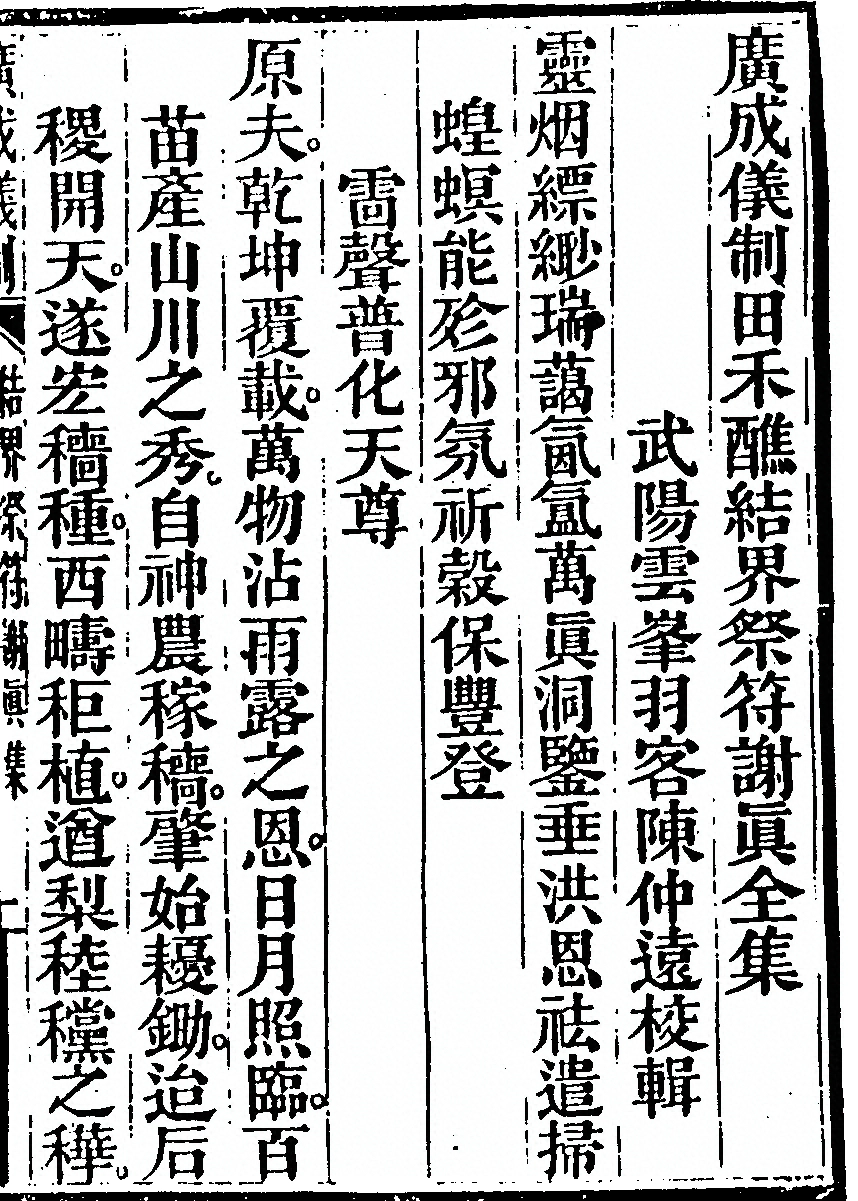 廣成儀制田禾醮結界祭符謝眞全集
武陽雲峯羽客陳仲遠校輯
靈烟縹緲瑞藹氤氳萬眞洞鑒垂洪恩祛遣掃
蝗螟能殄邪氛祈穀保豐登
雷聲普化天尊
原夫。乾坤覆載。萬物沾雨露之恩。日月照臨。百
苗產山川之秀。自神農稼穡。肇始耰鋤。迨后
稷開天。遂宏穡種。西疇秬植。遒梨稑穤之稺。
廣成儀制 結界祭符謝眞集